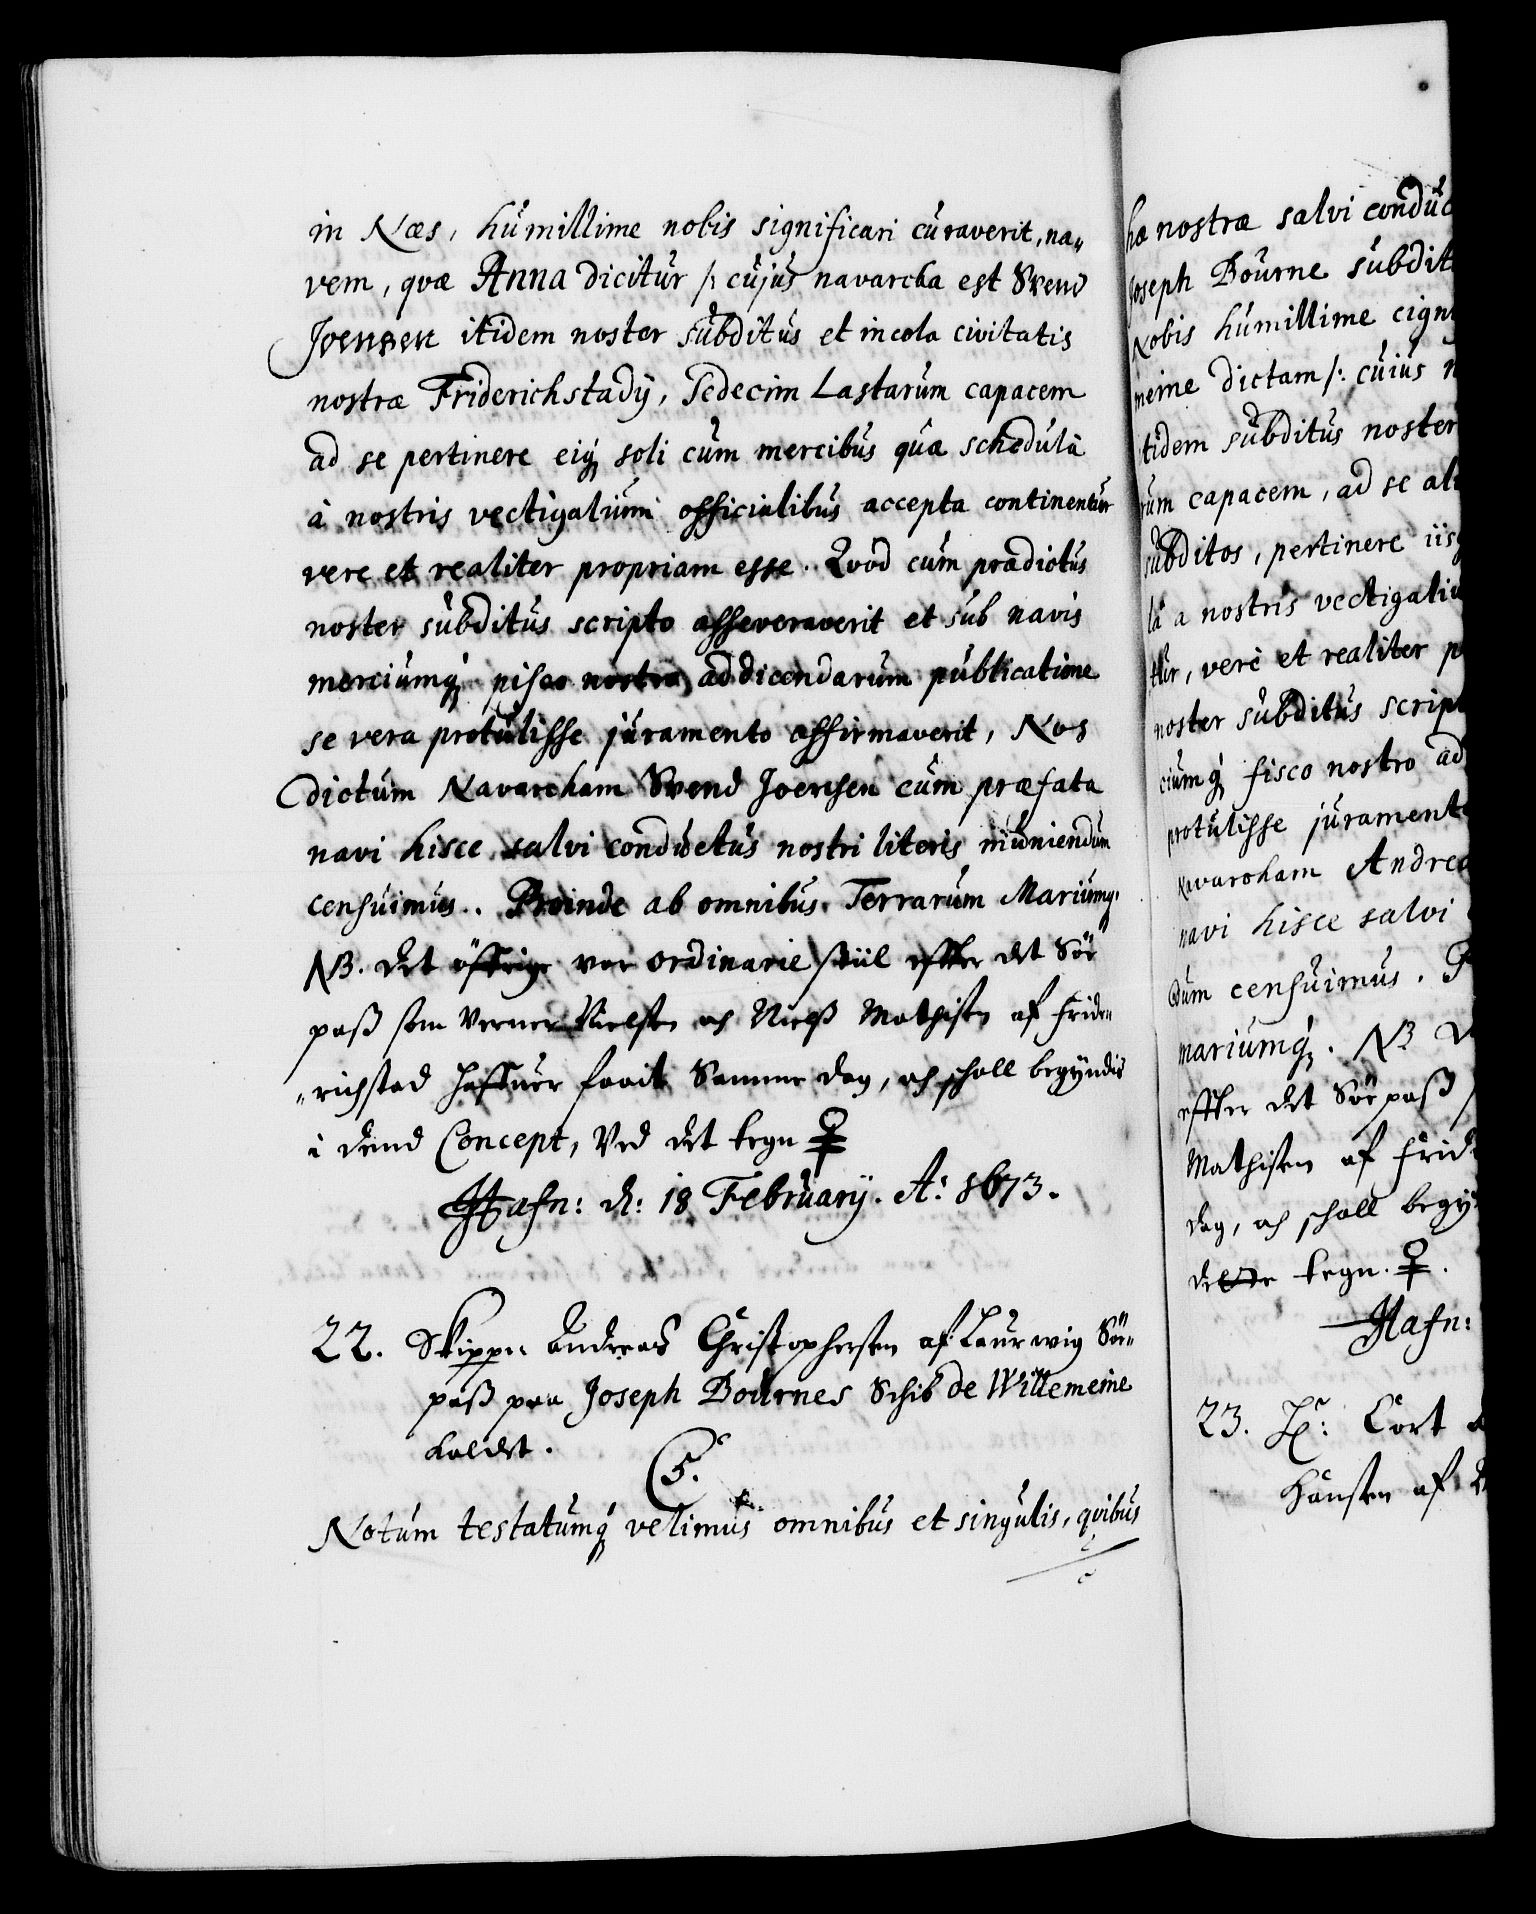 in Næs, humillime nobis significari curaverit, na„
vem, qvæ Anna dicitur /: cujus navarcha est Svend
Joensen itidem noster subditus et incola civitatis
nostræ Friderichstadÿ, Sedecim Lastarum capacem
ad se pertinere eiq́ soli cum mercibus quæ schedulà
à nostris vectigalium officialibus accepta continentur
vere et realiter propriam esse. Qvod cum prædictus
noster subditus scripto asseveraverit et sub navis
merciumq́ fisco nostro addicendarum publicatione
se vera protulisse juramento affirmaverit, Nos
dictum Navarcham Svend Joensen cum præfata
navi hisce salvi conductus nostri literis muniendum
censuimus. Proinde ab omnibus Terrarum Mariumq.
NB. det öffrige var ordinarie stiil effter det Söe
pass som Verner Nielsen och Nielss Mathisen af Fride„
„richstad haffuer faait Samme dag, och schall begyndis
i dend Concept, Ved det tegn ♀
Hafn: d: 18 Februarÿ. Aͦ: 1673.
22. Skipper Andreas Christophersen af Laurwig Söe„
pass paa Joseph Bournes Schib de Willemeine
kaldet.
C5.
Notum testatumq́ velimus omnibus et singulis, qvibus
hæ nostræ salvi conduc
Joseph Bourne subdit
Nobis humillime cign
meine dictam /: cuius n
itidem subditus noster
rum capacem, ad se al
subditos, pertinere iisq
là a nostris vectigaliu
tur, verè et realiter p
noster subditus script
ciumq́ fisco nostro ad
protulisse jurament
Navarcham Andrea
navi hisce salvi
dum censuimus. P
mariumq́. NB D
effter det Söe pass
Mathisen af Frid
dag, och schall begy
dette tegn. ♀.
Hafn:
23. Cort
Hansen af